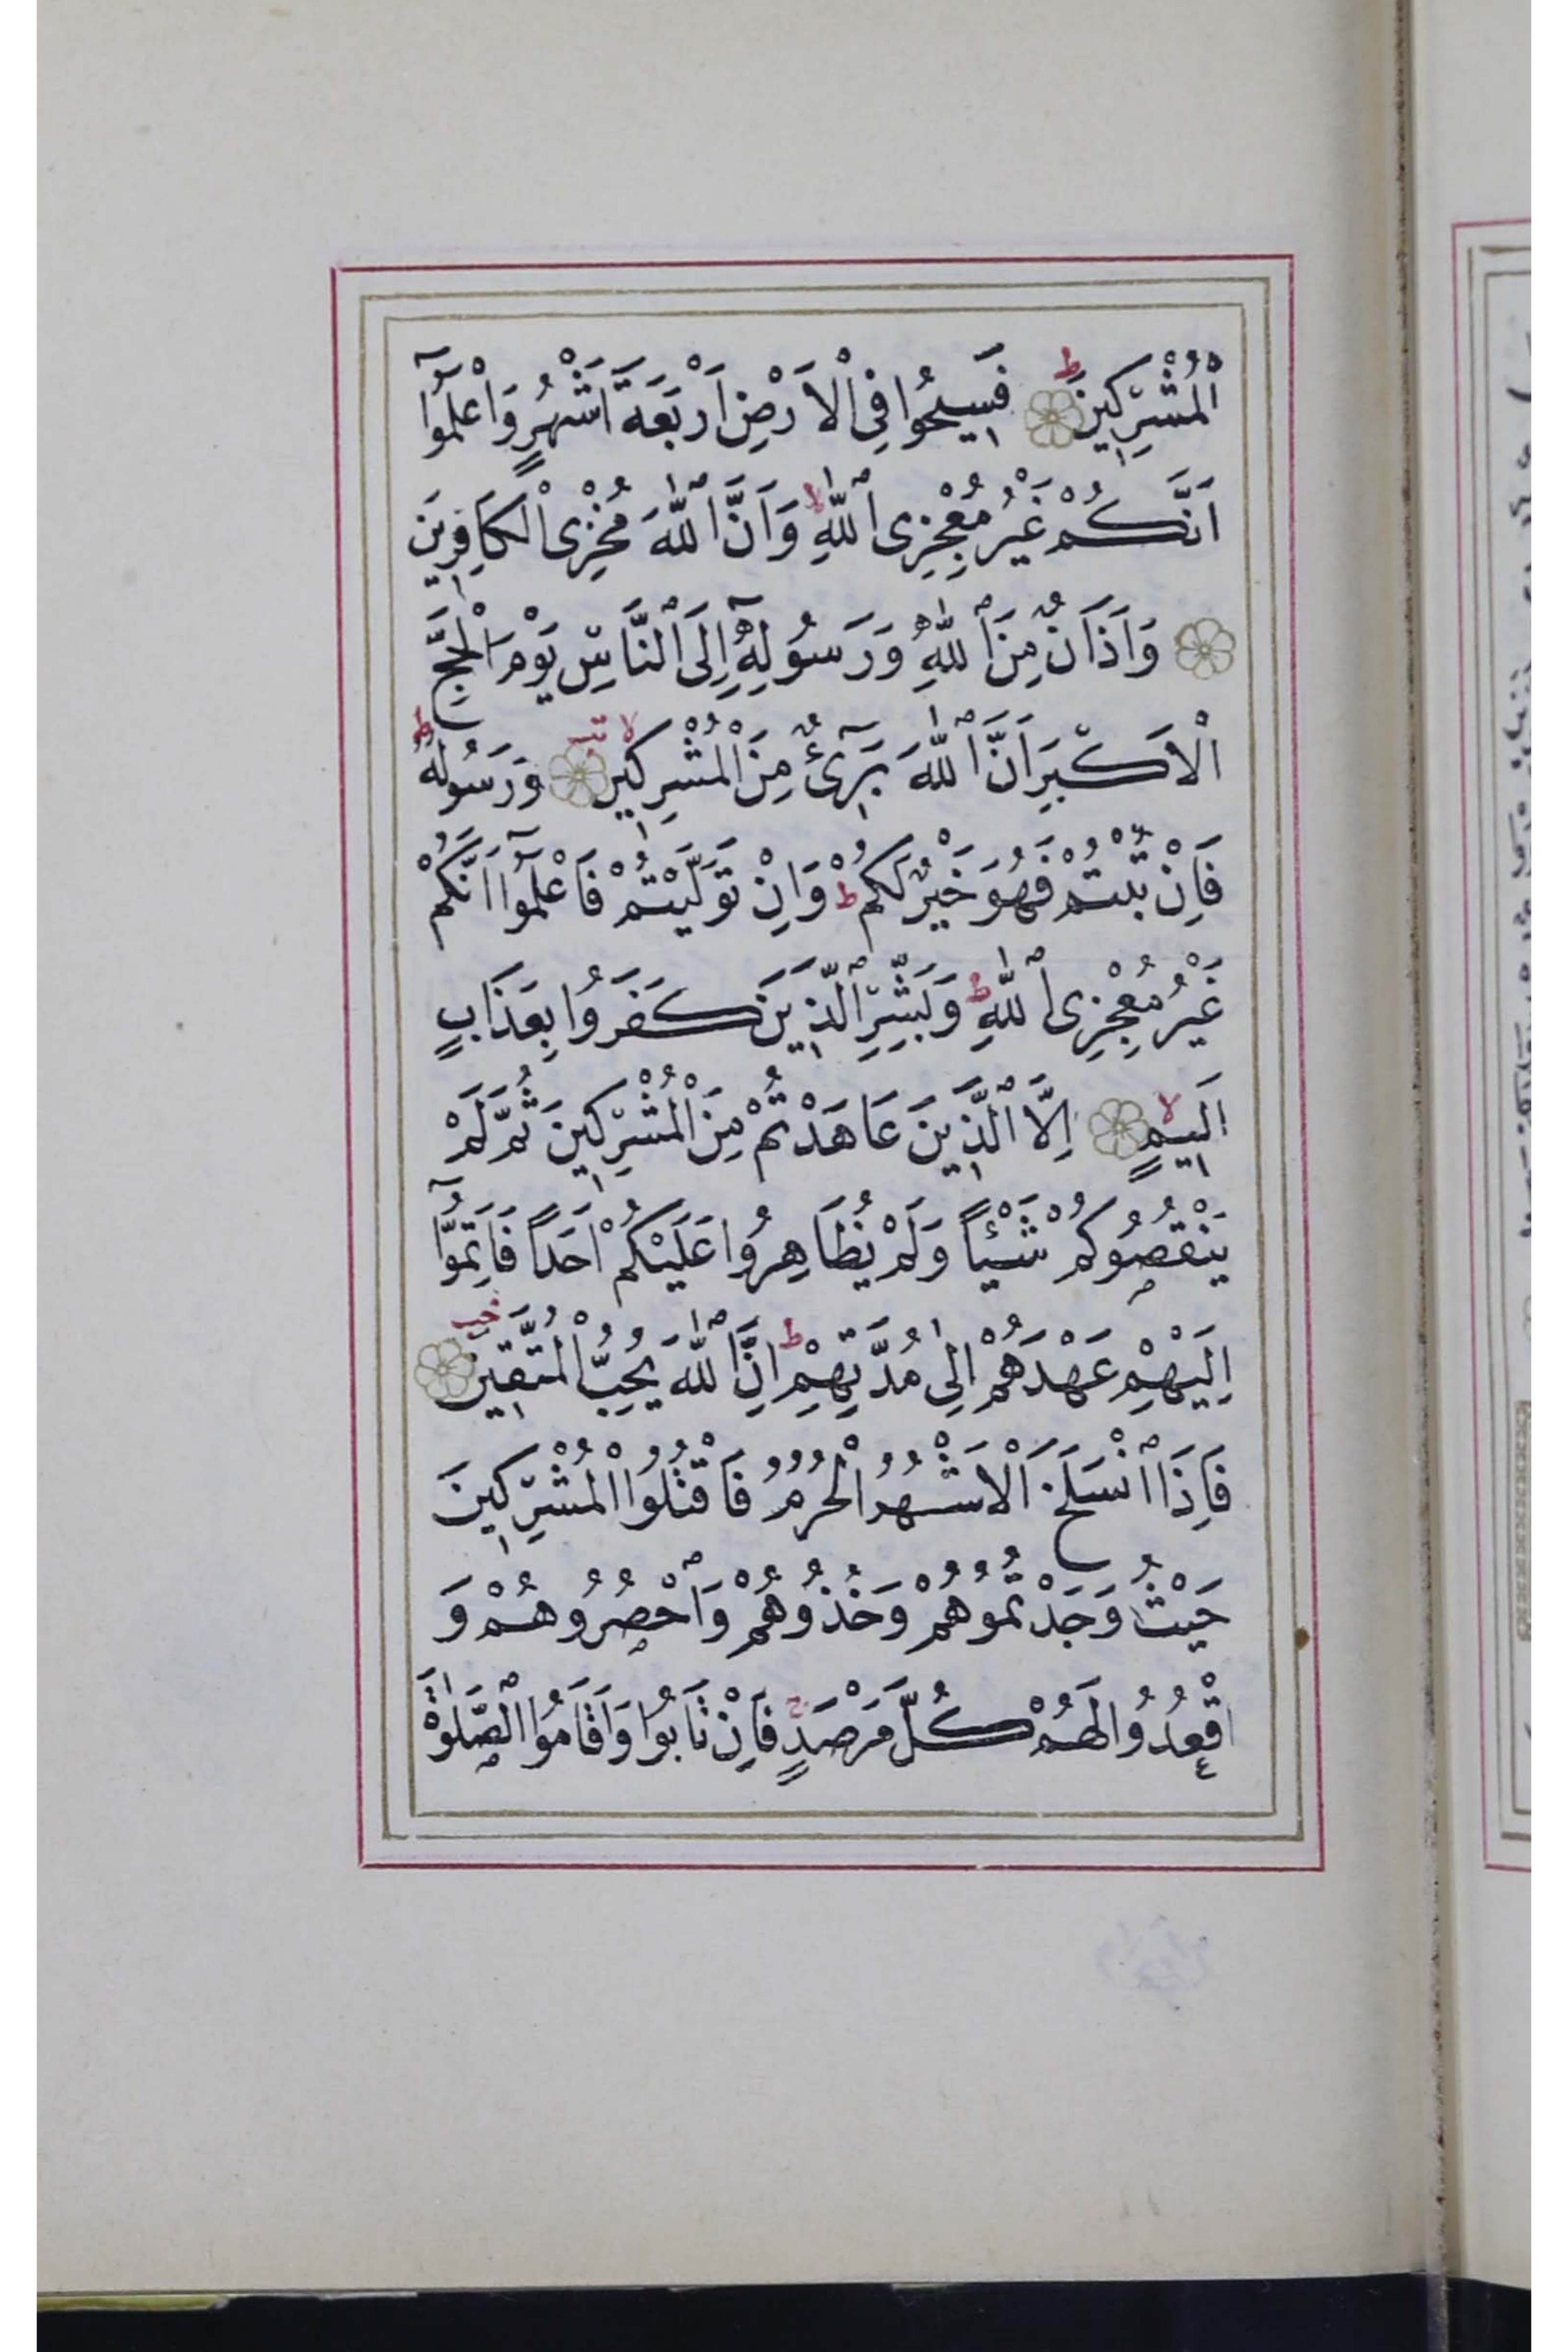 الْمُشْرِكِينَ ط فَسِيحُوا فِي الْاَرْضِ اَرْبَعَةَ اَشْهُرٍ وَاعْلَمُوٓا
اَنَّكُمْ غَيْرُ مُعْجِزِى اللّٰهِ لا وَاَنَّ اللّٰهَ مُخْزِى الْكَافِرِينَ
وَاَذَانٌ مِنَ اللّٰهِ وَرَسُولِهِٓ اِلَى النَّاسِ يَوْمَ الْحَجِّ
الْاَكْبَرِ اَنَّ اللّٰهَ بَرِٓئٌ مِنَ الْمُشْرِكِينَ لا وَرَسُولُهُ ط
فَاِنْ تُبْتُمْ فَهُوَ خَيْرٌ لَكُمْ ط وَاِنْ تَوَلَّيْتُمْ فَاعْلَمُوٓا اَنَّكُمْ
غَيْرُ مُعْجِزِى اللّٰهِ ط وَبَشِّرِ الَّذِينَ كَفَرُوا بِعَذَابٍ
اَلِيمٍ لا اِلَّا الَّذِينَ عَاهَدْتُمْ مِنَ الْمُشْرِكِينَ ثُمَّ لَمْ
يَنْقُصُوكُمْ شَيْئًا وَلَمْ يُظَاهِرُوا عَلَيْكُمْ اَحَدًا فَاَتِمُّوٓا
اِلَيْهِمْ عَهْدَهُمْ اِلٰى مُدَّتِهِمْ ط اِنَّ اللّٰهَ يُحِبُّ الْمُتَّقِينَ
فَاِذَا انْسَلَخَ الْاَشْهُرُ الْحُرُمُ فَاقْتُلُوا الْمُشْرِكِينَ
حَيْثُ وَجَدْتُمُوهُمْ وَخُذُوهُمْ وَاحْصُرُوهُمْ وَ
اقْعُدُوا لَهُمْ كُلَّ مَرْصَدٍ ج فَاِنْ تَابُوا وَاَقَامُوا الصَّلٰوةَ